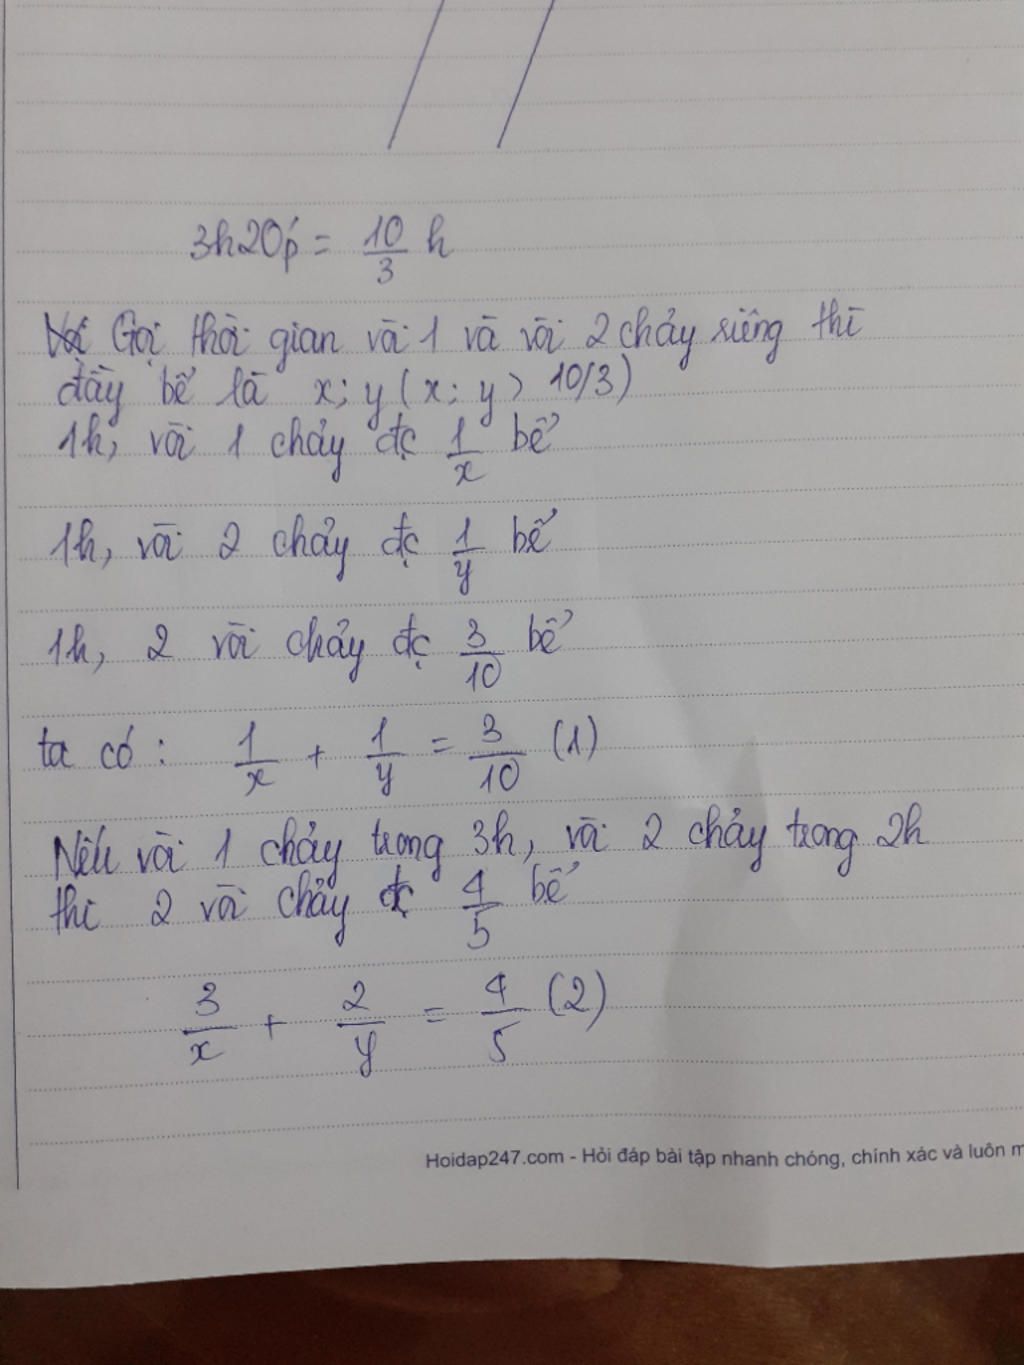 3h20p' = 10/3 h
Gọi thời gian vòi 1 và vòi 2 chảy riêng thì
đầy bể là x; y (x; y > 10/3)
1h, vòi 1 chảy đc 1/x bể
1h, vòi 2 chảy đc 1/y bể
1h, 2 vòi chảy đc 3/10 bể
ta có: 1/x + 1/y = 3/10 (1)
Nếu vòi 1 chảy trong 3h, vòi 2 chảy trong 2h
thì 2 vòi chảy đc 4/5 bể
3/x + 2/y = 4/5 (2)
Hoidap247.com - Hỏi đáp bài tập nhanh chóng, chính xác và luôn m